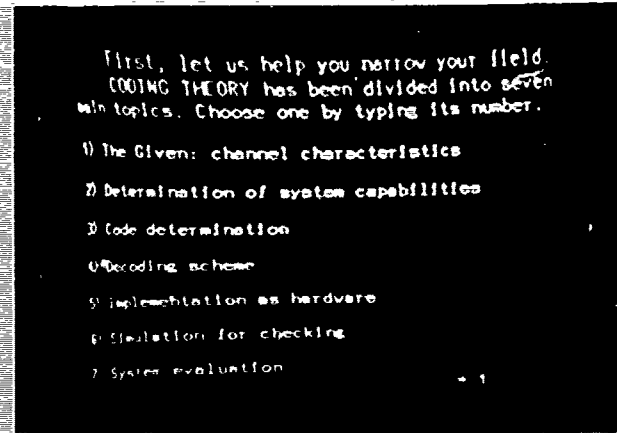 First, let us help you narrow your field.
CODING THEORY has been divided into seven
main topics. Choose one by typing its number.
1) The Given: channel characteristics
2) Determination of system capabilities
3) Code determination
4) Decoding scheme
5) Implementation as hardware
6) Simulation for checking
7) System evaluation
→ 1